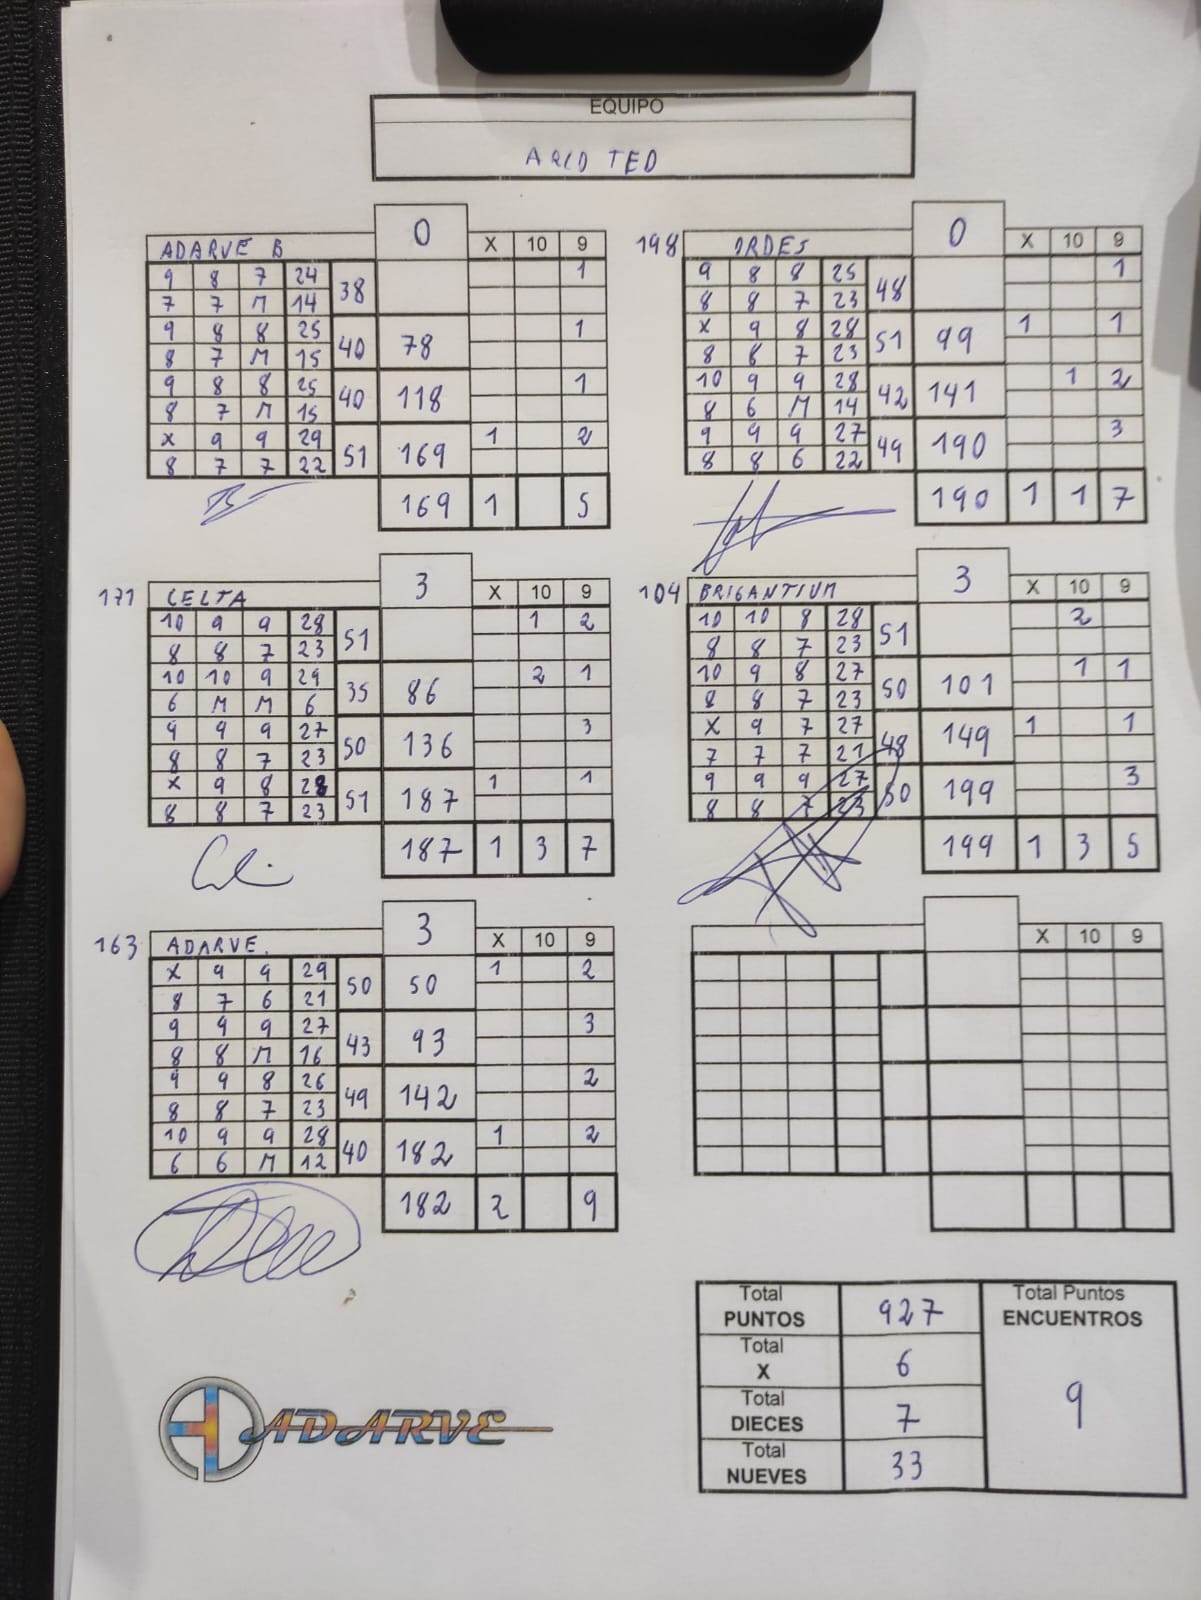 EQUIPO
ARCO TED
ADARVE B 0 X 10 9
9 8 7 24 38 1
7 7 M 14
9 8 8 25 40 78 1
8 7 M 15
9 8 8 25 40 118 1
8 7 M 15
X 9 9 29 51 169 1 2
8 7 7 22
169 1 5
198 ORDES 0 X 10 9
9 8 8 25 48 1
8 8 7 23
X 9 8 28 51 99 1 1
8 8 7 23
10 9 9 28 42 141 1 2
8 6 M 14
9 9 9 27 49 190 3
8 8 6 22
190 1 1 7
171 CELTA 3 X 10 9
10 9 9 28 51 1 2
8 8 7 23
10 10 9 29 35 86 2 1
6 M M 6
9 9 9 27 50 136 3
8 8 7 23
X 9 8 28 51 187 1 1
8 8 7 23
187 1 3 7
104 BRIGANTIUM 3 X 10 9
10 10 8 28 51 2
8 8 7 23
10 9 8 27 50 101 1 1
8 8 7 23
X 9 7 27 48 149 1 1
7 7 7 21
9 9 9 27 50 199 3
8 8 7 23
199 1 3 5
163 ADARVE. 3 X 10 9
X 9 9 29 50 50 1 2
8 7 6 21
9 9 9 27 43 93 3
8 8 M 16
9 9 8 26 49 142 2
8 8 7 23
10 9 9 28 40 182 1 2
6 6 M 12
182 2 9
X 10 9
Total PUNTOS 927
Total X 6
Total DIECES 7
Total NUEVES 33
Total Puntos ENCUENTROS
9
ADARVE